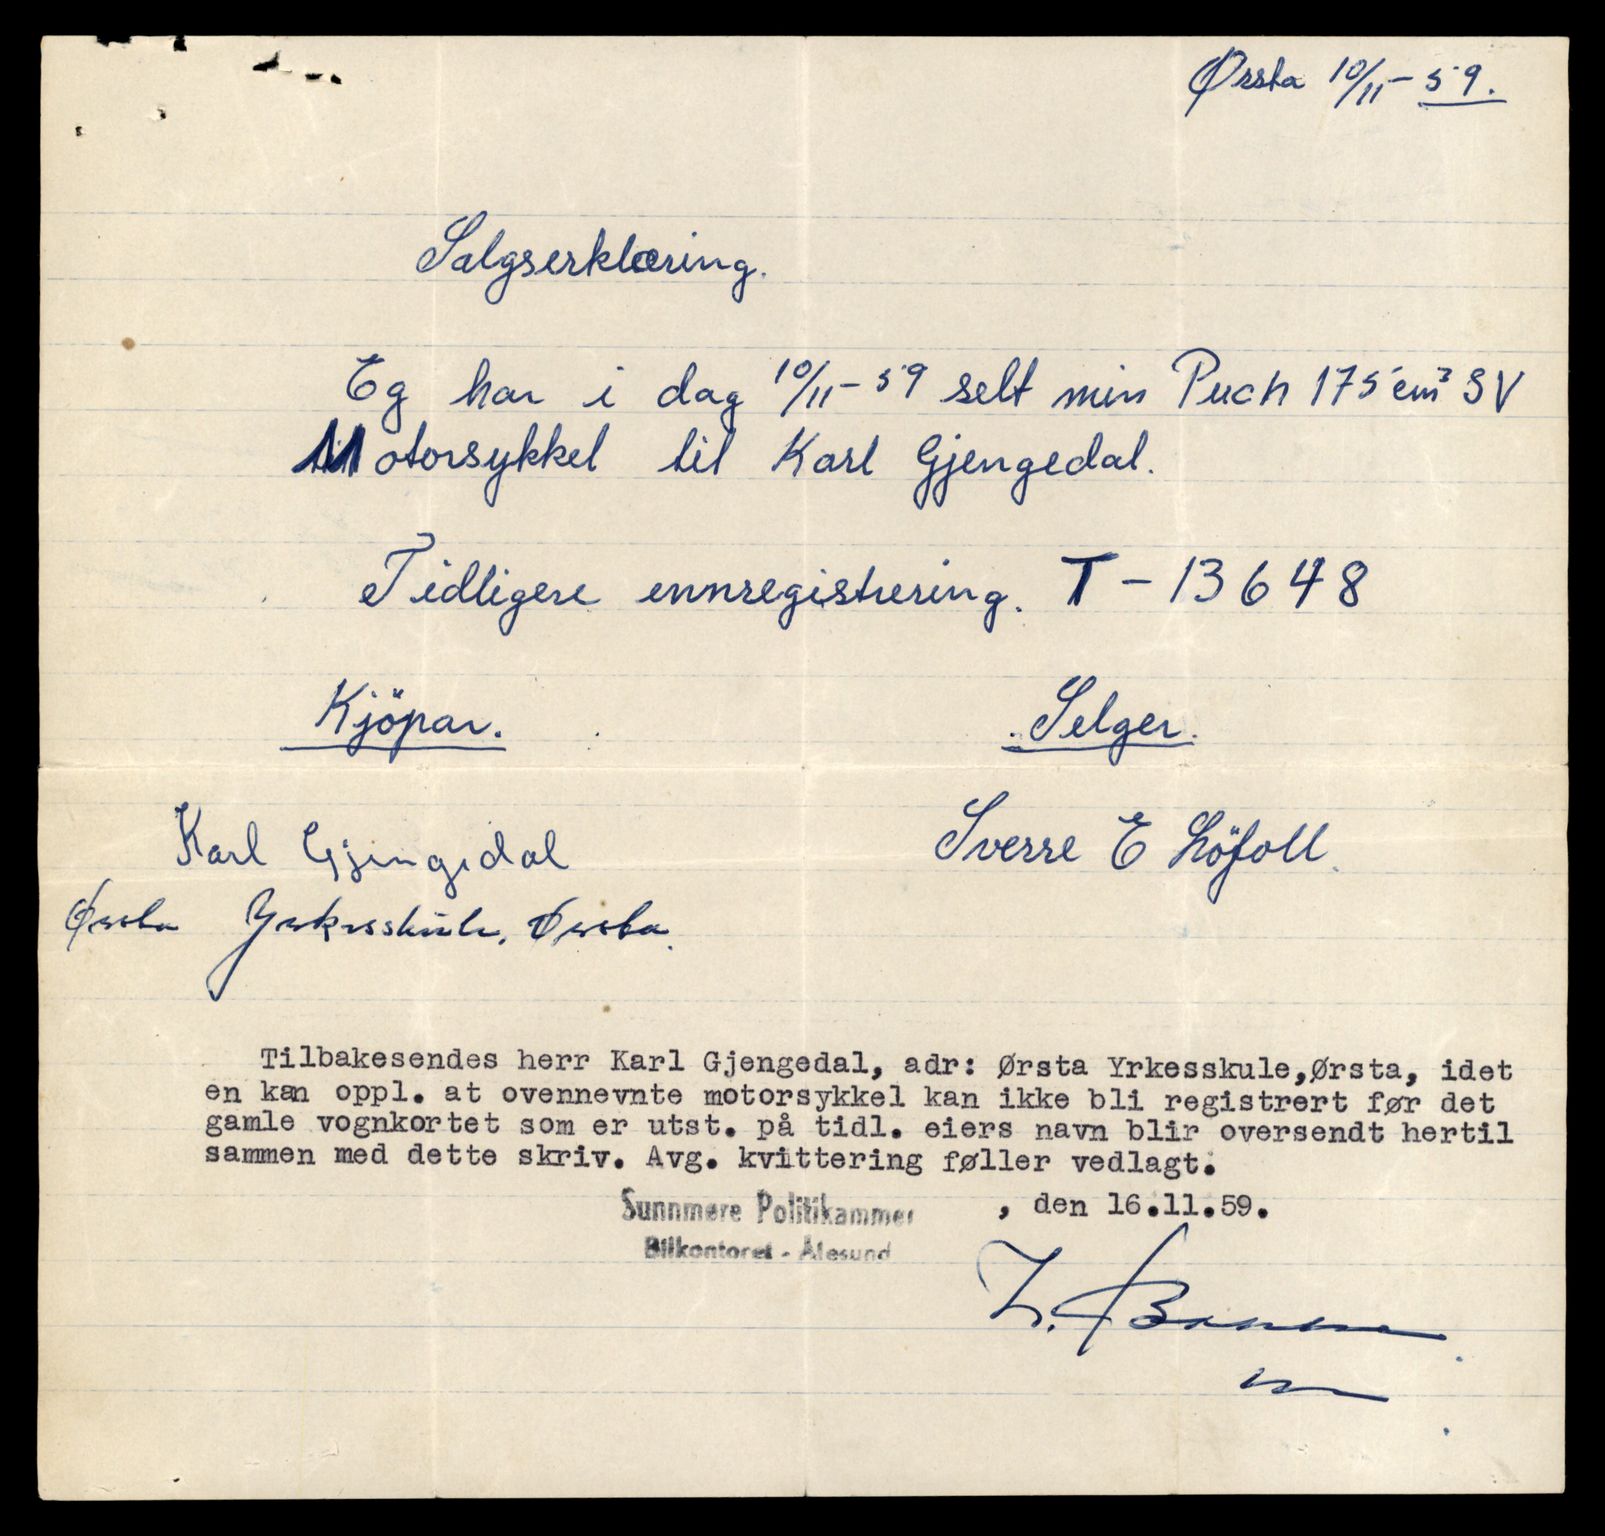 Ørsta 10/11 - 59.
Salgserklæring.
Eg har i dag 10/11 - 59 selt min Puch 175 cm³ SV
Motorsykkel til Karl Gjengedal.
Tidligere ennregistrering. T - 13648
Kjöpar. Selger.
Karl Gjengedal Sverre E Löfoll.
Ørsta Yrkesskule, Ørsta.
Tilbakesendes herr Karl Gjengedal, adr: Ørsta Yrkesskule,Ørsta, idet
en kan oppl. at ovennevnte motorsykkel kan ikke bli registrert før det
gamle vognkortet som er utst. på tidl. eiers navn blir oversendt hertil
sammen med dette skriv. Avg. kvittering føller vedlagt.
Sunnmøre Politikammer , den 16.11.59.
Bilkontoret - Ålesund